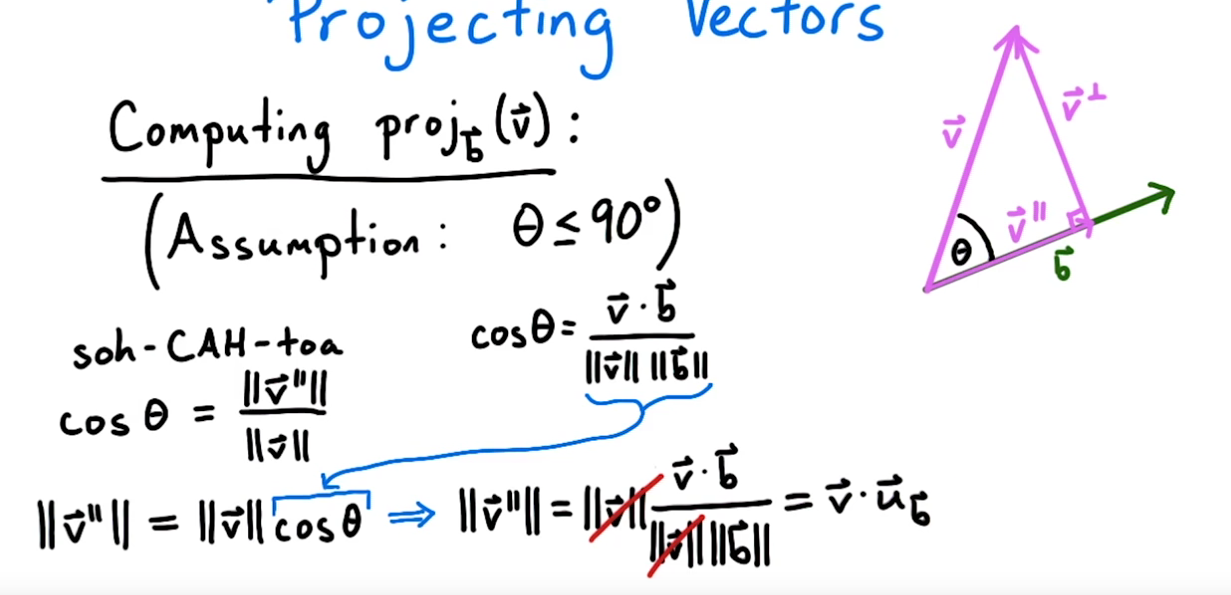 Projecting Vectors
Computing proj_b⃗(v⃗):
(Assumption: θ ≤ 90°)
soh-CAH-toa
cos θ = ‖v⃗"‖ / ‖v⃗‖
cosθ = v⃗·b⃗ / ‖v⃗‖ ‖b⃗‖
‖v⃗"‖ = ‖v⃗‖ cos θ ⇒ ‖v⃗"‖ = ‖v⃗‖ v⃗·b⃗ / ‖v⃗‖ ‖b⃗‖ = v⃗·u⃗_b⃗
v⃗
v⃗⊥
v⃗"
θ
b⃗